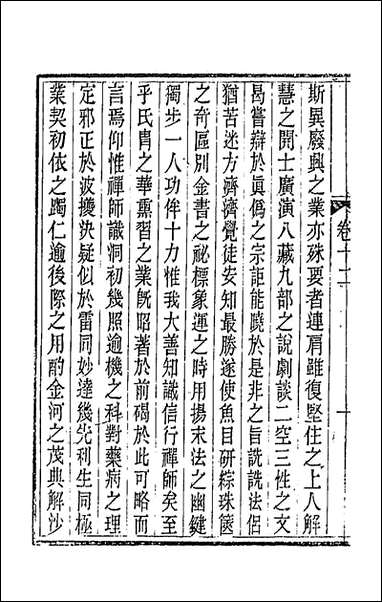 斯異廢興之業亦殊要者連肩雖復堅住之上人解
慧之開士廣演八藏九部之說劇談二空三性之文
曷嘗辯於眞僞之宗詎能曉於是非之旨詵詵法侶
猶苦迷方濟濟覺徒安知最勝遂使魚目研綜珠篋
之奇區別金書之祕標象運之時用揚末法之幽鍵
獨步一人功侔十力惟我大善知識信行禪師矣至
乎氏胄之華熏習之業旣昭著於前碣於此可略而
言焉仰惟禪師識洞初幾照逾機之科對藥病之理
定邪正於波攪決疑似於雷同妙達幾先利生同極
業契初依之躅仁逾後際之用酌金河之茂典解沙
卷十二